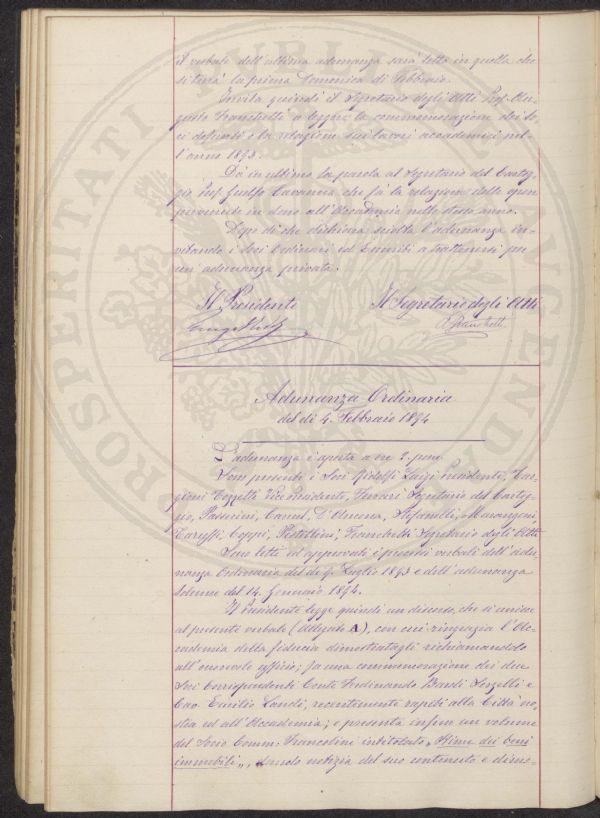 il verbale dell'ultima adunanza sarà letto in quella che
si terrà la prima Domenica di Febbraio.
Invita quindi il Segretario degli Atti Prof. Au-
gusto Franchetti a leggere la commemorazione dei So-
ci defunti e la relazione sui lavori accademici nel-
l'anno 1893.
Dà in ultimo la parola al Segretario del Carteg-
gio Prof. che fà la relazione delle opere
pervenute in dono all'Accademia nello stesso anno.
Dopo di che dichiara sciolta l'adunanza in-
vitando i Soci Ordinari ed Emeriti a trattenersi per
un'adunanza privata.
Il Presidente Il Segretario degli Atti
A Franchetti
Adunanza Ordinaria
del dì 4. Febbraio 1894
L'adunanza è aperta a ore 2. pom.
Sono presenti i Soci Ridolfi Luigi Presidente, Tar-
gioni Tozzetti Vice presidente, Ferrari Segretario del Carteg-
gio, Passerini, Caruel, D'Ancona, Stefanelli, Marangoni,
Caruffi, Coppi, Pestellini, Franchetti Segretario degli Atti
Sono letti ed approvati i processi verbali dell'adu-
nanza Ordinaria del dì 9. Luglio 1893 e dell'adunanza
solenne del 14. Gennaio 1894.
Il Presidente legge quindi un discorso, che si unisce
al presente verbale (Allegato A), con cui ringrazia l'Ac-
cademia della fiducia dimostratagli richiamandolo
all'onorevole ufficio; fa una commemorazione dei due
Soci Corrispondenti Conte Ferdinando Bardi Serzelli e
Cav. Emilio Landi, recentemente rapiti alla Città no-
stra ed all'Accademia; e presenta infine un volume
del Socio Comm. Francolini intitolato „Stime dei beni
immobili„, dando notizia del suo contenuto e dimo-
PROSPERITATI PUBLICAE AUGENDAE